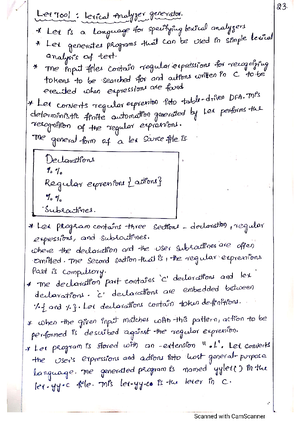 83
Lex Tool : Lexical Analyzer generator.
* Lex is a language for specifying lexical analyzers
* Lex generates programs that can be used in simple lexical
analysis of text.
* The input files contain regular expressions for recognizing
tokens to be searched for and actions written in C to be
executed when expressions are found
* Lex converts regular expression into table-driven DFA. This
deterministic finite automation generated by Lex performs the
recognition of the regular expressions.
The general form of a lex source file is
Declarations
%%
Regular expressions {actions}
%%
Subroutines.
* Lex program contains three sections - declaration, regular
expressions, and subroutines.
where the declaration and the user subroutines are often
omitted. The second section that is, the regular expressions
Part is compulsory.
* The declaration part contains 'C' declarations and lex
declarations. 'C' declarations are embedded between
%{ and %}. Lex declarations contain token definitions.
* when the given input matches with this pattern, action to be
performed is described against the regular expression.
* Lex program is stored with an extension ".l". Lex converts
the user's expressions and actions into host general purpose
Language. The generated program is named yylex() in the
lex.yy.c file. This lex.yy.c is the lexer in C.
Scanned with CamScanner